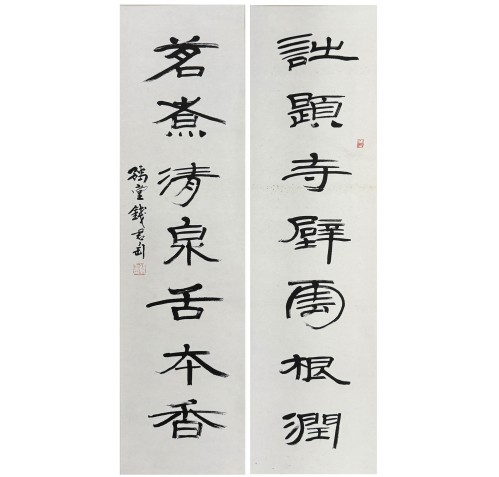 詩題寺壁雲根潤
茗煮清泉舌本香
豫堂錢君匋